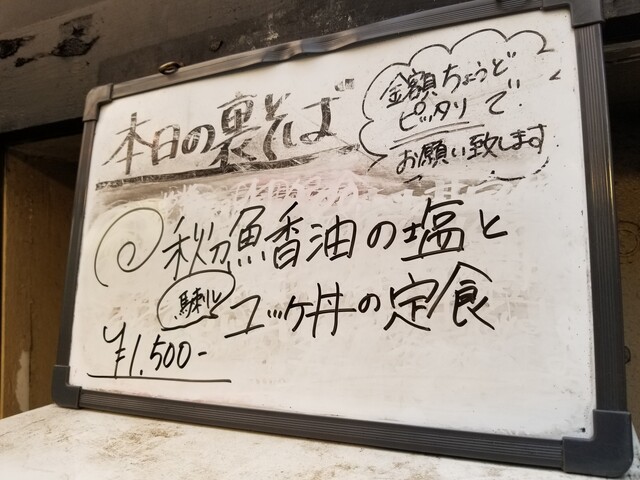 本日の裏そば
金額ちょうど
ピッタリで
お願い致します
秋刀魚香油の塩と
馬刺し
ユッケ丼の定食
¥1,500-